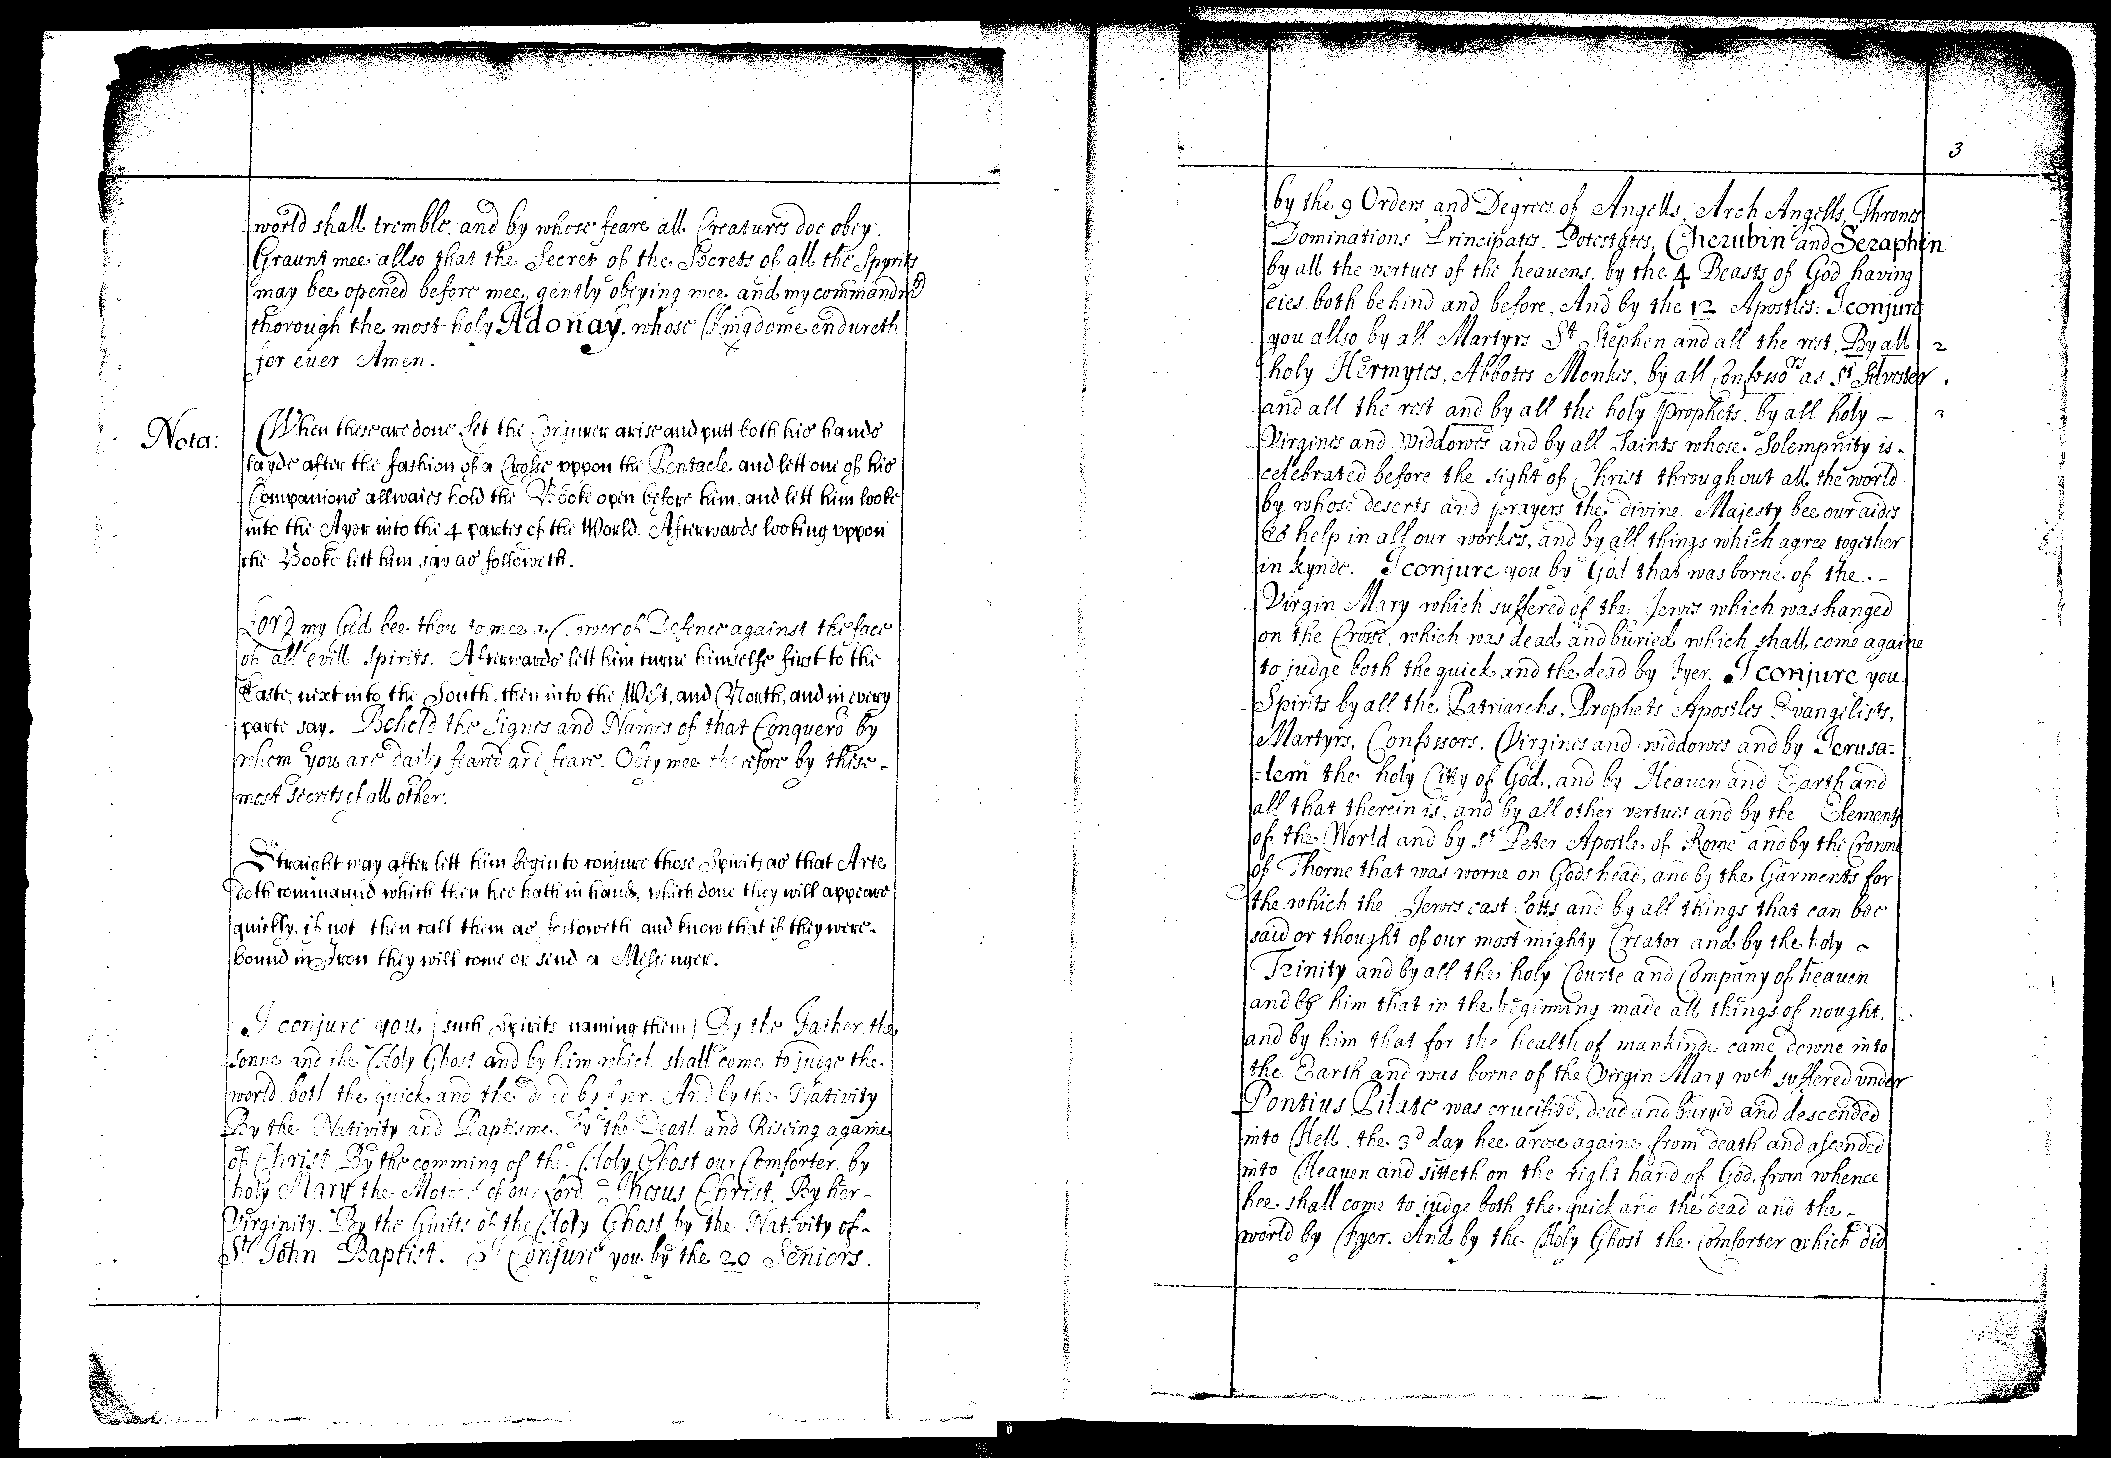 world shall tremble, and by whose feare all Creatures doe obey.
Graunt mee allso that the Secret of the Secrets of all the Spyrits
may bee opened before mee, gently obeying mee and my commandm
thorough the most holy Adonay. whose Kingdome endureth
for euer Amen.
Nota:
When these are done Let the Conjurer arise and putt both his hands
layde after the fashion of a Crosse vppon the Pentacle and lett one of his
Companions allwaies hold the Booke open before him, and lett him looke
into the Ayer into the 4 partes of the World. Afterwards looking vppon
the Booke lett him say as followeth.
Lord my God bee thou to mee a Tower of Defence against the face
of all evill Spirits. Afterwards lett him turne himselfe first to the
Easte, next into the South, then into the West, and North, and in every
parte say. Behold the Signes and Names of that Conquero by
whom you are daily feard and feare. Obey mee therefore by these -
most Secrets of all other.
Straight way after lett him begin to conjure those Spirits as that Arte
doth command which then hee hath in hand, which done they will appeare
quickly, if not then call them as followeth and know that if they were -
bound in Iron they will come or send a Messenger.
I conjure you, (such Spirits naming them) By the Father, the
sonne and the Holy Ghost and by him which shall come to judge the
world both the quick and the dead by fyer. And by the Nativity
By the Nativity and Baptisme, By the Death and Riseing againe
of Christ By the comming of the Holy Ghost our Comforter, by
holy Mary the Mother of our Lord Jhesus Christ. By her -
Virginity. By the Guifts of the Holy Ghost by the Nativity of -
St John Baptist. I Conjure you by the 20 Seniors.
3
by the 9 Orders and Degrees of Angells, Arch Angells, Thrones
Dominations Principates. Potestates, Cherubin and Seraphin
by all the vertues of the heavens, by the 4 Beasts of God having
eies both behind and before, And by the 12 Apostles: I conjure
you allso by all Martyrs St Stephen and all the rest, By all
holy Hermytes, Abbotes Monkes, by all Confessors as St Silvester
and all the rest and by all the holy Prophets. by all holy -
Virgines and widdowes and by all Saints whose Solempnity is -
celebrated before the sight of Christ throughout all the world
by whose deserts and prayers the divine Majesty bee our aides
help in all our workes, and by all things which agree together
in kynde. I conjure you by God that was borne of the -
Virgin Mary which suffered of the Jewes which was hanged
on the Crosse, which was dead and buried which shall come againe
to judge both the quick and the dead by fyer. I conjure you
Spirits by all the Patriarchs, Prophets Apostles Evangelists,
Martyrs, Confessors, Virgines and widdowes and by Jerusa=
=lem the holy Citty of God, and by Heaven and Earth and
all that therein is, and by all other vertues and by the Elements
of the World and by St Peter Apostle of Rome and by the Crowne
of Thorne that was worne on Gods head, and by the Garments for
the which the Jewes cast lotts and by all things that can bee
said or thought of our most mighty Creator and by the holy -
Trinity and by all the holy Courte and Company of heaven
and by him that in the beginning made all things of nought,
and by him that for the health of mankinde came downe into
the Earth and was borne of the Virgin Mary wch suffered vnder
Pontius Pilate was crucified, dead and buryed and descended
into Hell the 3d day hee arose againe from death and ascended
into Heaven and sitteth on the right hand of God, from whence
hee shall come to judge both the quick and the dead and the -
world by fyer. And by the Holy Ghost the Comforter which did